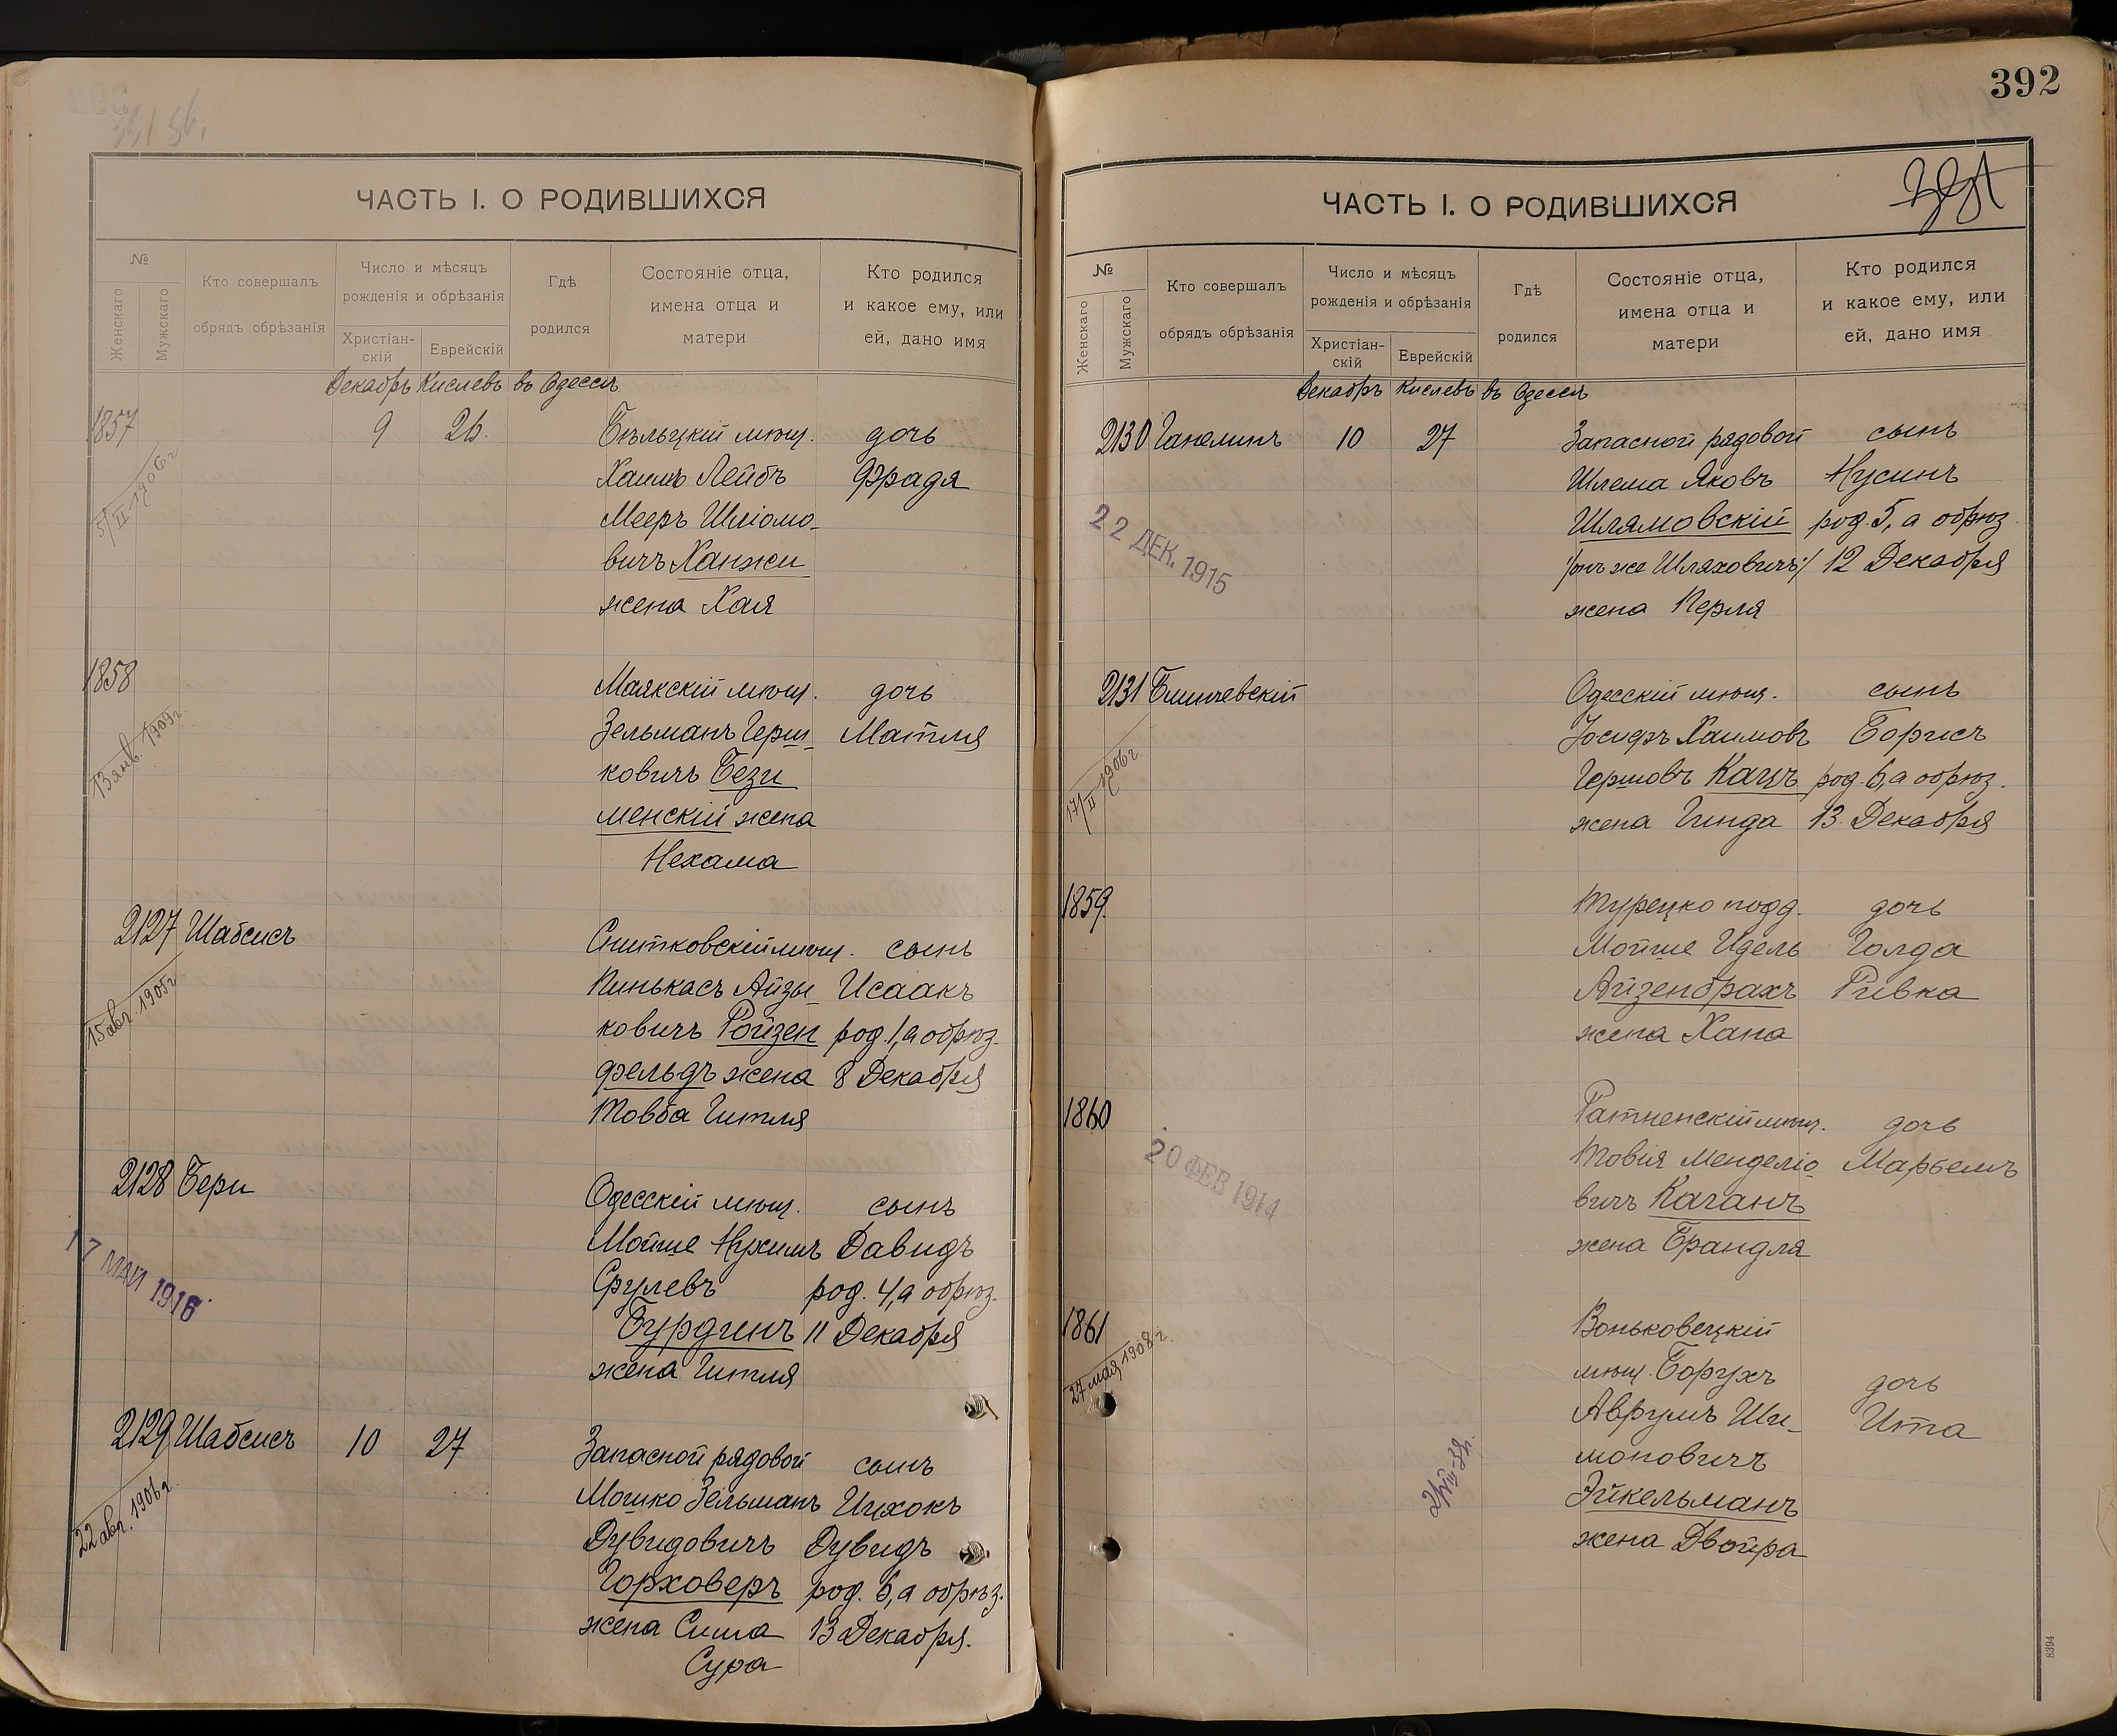 ЧАСТЬ I. О РОДИВШИХСЯ
№
Женскаго
Мужскаго
Кто совершалъ
обрядъ обрѣзанія
Число и мѣсяцъ
рожденія и обрѣзанія
Христіан-
скій
Еврейскій
Гдѣ
родился
Состояніе отца,
имена отца и
матери
Кто родился
и какое ему, или
ей, дано имя
Декабрь Кислевъ въ Одессѣ
1857 9 26. Бѣльцкій мѣщ. дочь
Хаимъ Лейбъ Фрадя
5/II 1906 г
Мееръ Шліомо-
вичъ Ханжи
жена Хая
1858 Маякскій мѣщ. дочь
Зельманъ Герш- Матля
13 янв. 1909 г.
ковичъ Бези
менскій жена
Нехама
2127 Шабсисъ Снитковскій мѣщ. сынъ
Пинькасъ Айзы- Исаакъ
15 авг. 1905 г
ковичъ Ройзен род. 1, а обрѣз.
фельдъ жена 8 Декабря
Товба Гитля
2128 Бери Одесскій мѣщ. сынъ
Мойше Нухимъ Давидъ
17 МАЙ 1916
Срулевъ род. 4, а обрѣз.
Бурдинъ 11 Декабря
жена Гитля
2129 Шабсисъ 10 27 Запасной рядовой сынъ
Мошко Зельманъ Ицхокъ
22 авг. 1906 г.
Дувидовичъ Дувидъ
Горховеръ род. 6, а обрѣз.
жена Сима 13 Декабря.
Сура
392
ЧАСТЬ I. О РОДИВШИХСЯ
№
Женскаго
Мужскаго
Кто совершалъ
обрядъ обрѣзанія
Число и мѣсяцъ
рожденія и обрѣзанія
Христіан-
скій
Еврейскій
Гдѣ
родился
Состояніе отца,
имена отца и
матери
Кто родился
и какое ему, или
ей, дано имя
Декабрь Кислевъ въ Одессѣ
2130 Ганелинъ 10 27 Запасной рядовой сынъ
Шлема Яковъ Нусинъ
22 ДЕК. 1915
Шлямовскій род. 5, а обрѣз
/онъ же Шляховичъ/ 12 Декабря
жена Перля
2131 Блинчевскій Одесскій мѣщ. сынъ
Іосифъ Хаимовъ Борисъ
17/II 1906 г.
Гершовъ Кацъ род. 6, а обрѣз.
жена Гинда 13 Декабря
1859 Турецко подд. дочь
Мойше Идель Голда
Айзенбрахъ Ривка
жена Хана
1860 Ратненскій мѣщ. дочь
20 ФЕВ 1914
Товія Менделіо- Марьемъ
вичъ Каганъ
жена Брандля
1861 Воньковецкій
27 мая 1908 г.
мѣщ. Борухъ дочь
Аврумъ Ши- Ита
моновичъ
Эйкельманъ
жена Двойра
8394